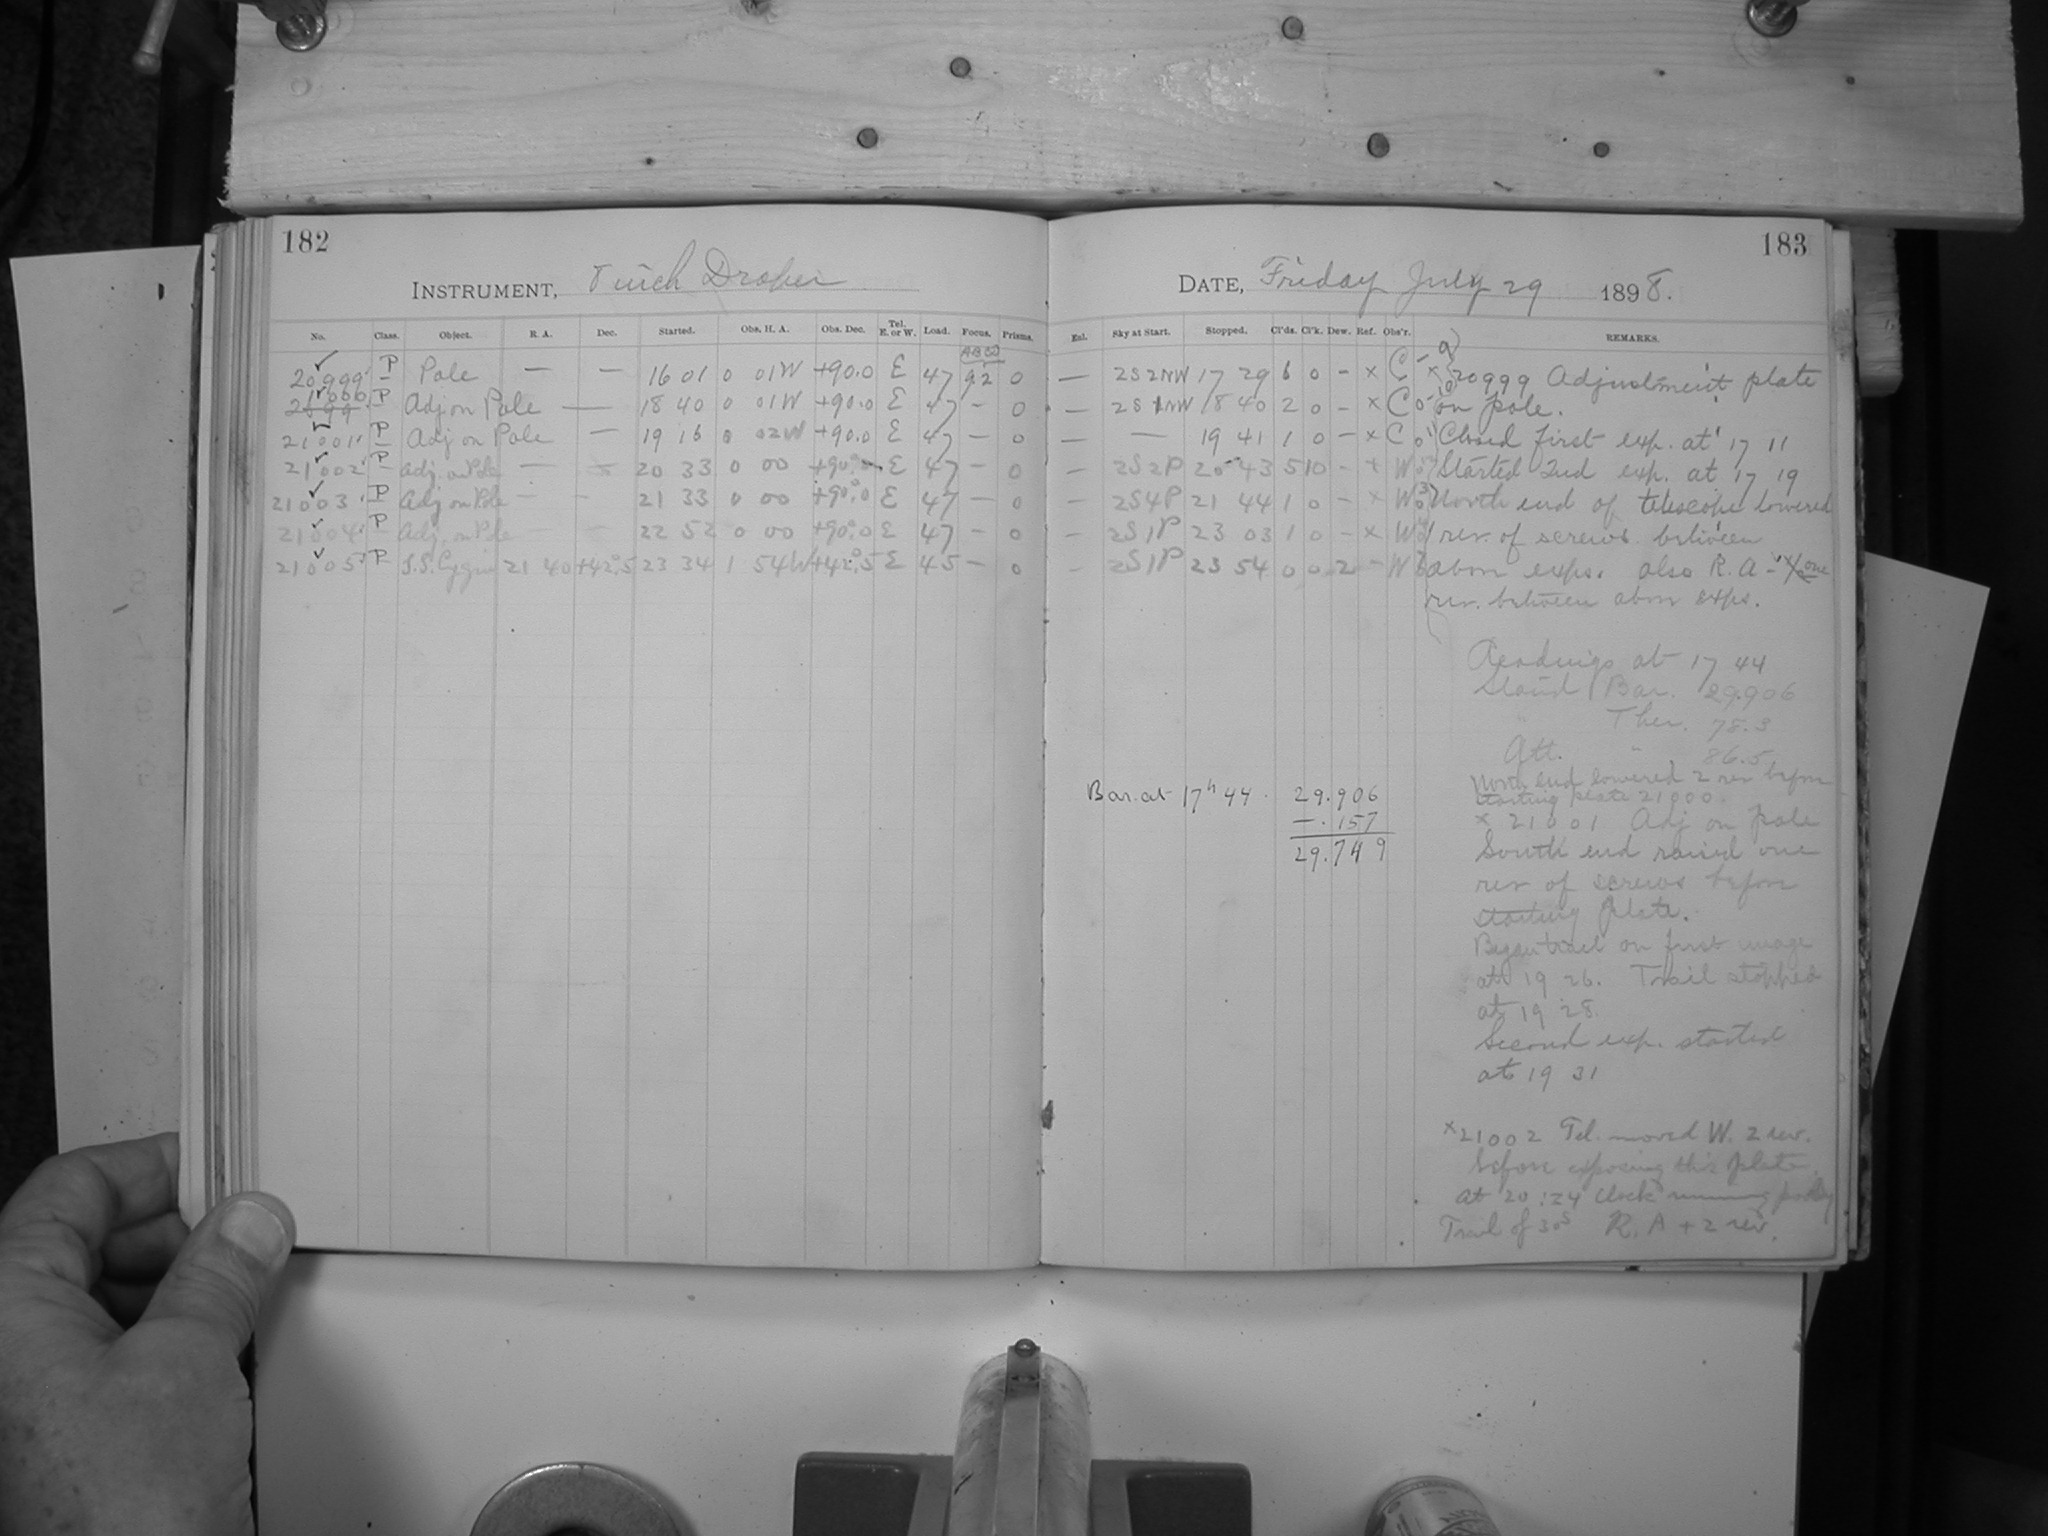 182
INSTRUMENT, 8 inch Draper
No. Class. Object. R. A. Dec. Started. Obs. H. A. Obs. Dec. Tel. E. or W. Load. Focus. Prisms.
20999 P Pole — — 16 01 0 01W +90.0 E 47 9.2 0
21000 P Adj on Pole — 18 40 0 01W +90.0 E 47 — 0
21001 P Adj on Pole — 19 16 0 02W +90.0 E 47 — 0
21002 P Adj. on Pole — 20 33 0 00 +90.0 E 47 — 0
21003 P Adj on Pole — — 21 33 0 00 +90.0 E 47 — 0
21004 P Adj. on Pole — — 22 52 0 00 +90.0 E 47 — 0
21005 P S.S. Cygni 21 40 +42.5 23 34 1 54W +42.5 E 45 — 0
183
DATE, Friday July 29 1898.
Enl. Sky at Start. Stopped. Cl'ds. Cl'k. Dew. Ref. Obs'r. REMARKS.
— 2S2NW 17 29 6 0 – × C × 20999 Adjustment plate
— 2S1NW 18 40 2 0 – × C on pole.
— — 19 41 1 0 – × C Closed first exp. at 17 11
— 2S2P 20 43 5 10 – × W Started 2nd exp. at 17 19
— 2S4P 21 44 1 0 – × W North end of telescope lowered
— 2S1P 23 03 1 0 – × W 1 rev. of screws between
— 2S1P 23 54 0 0 2 – W above exps. also R. A – one
rev. between above exps.
Readings at 17 44
Stand Bar. 29.906
" Ther. 78.3
Att. " 86.5
North end lowered 2 rev before
starting plate 21000.
Bar. at 17ʰ 44. 29.906
– .157
29.749
× 21001 Adj on pole
South end raised one
rev of screws before
starting plate.
Began trail on first image
at 19 26. Trail stopped
at 19 28.
Second exp. started
at 19 31
× 21002 Tel. moved W. 2 rev.
before exposing this plate.
at 20:24 Clock running poorly
Trail of 30ˢ R. A + 2 rev.